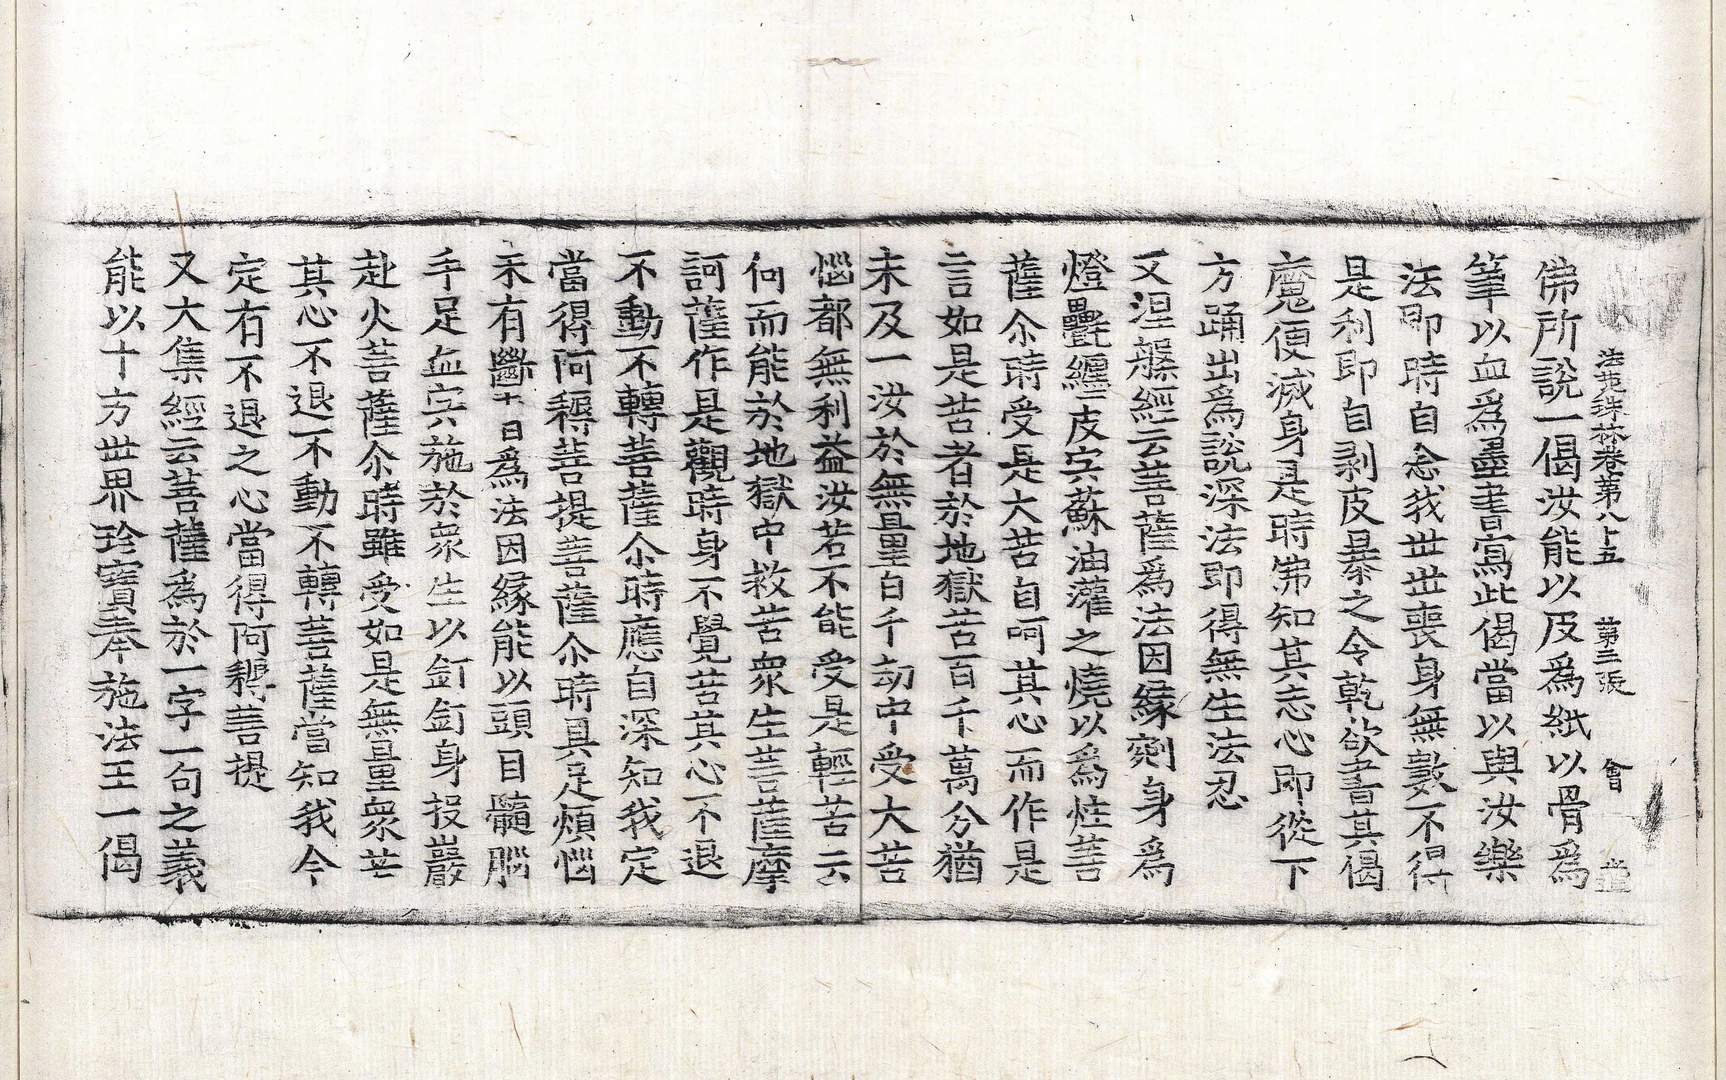 法苑珠林卷第八十五　第二張　會
佛所說一偈汝能以皮為紙以骨為
筆以血為墨書寫此偈當以與汝樂
法即時自念我世世喪身無數不得
是利即自剥皮曝之令乾欲書其偈
魔便滅身是時佛知其志心即從下
方踊出為說深法即得無生法忍
又涅槃經云菩薩為法因緣剜身為
燈㲲纏皮宍蘇油灌之燒以為炷菩
薩尒時受是大苦自呵其心而作是
言如是苦者於地獄苦百千萬分猶
未及一汝於無量百千劫中受大苦
惱都無利益汝若不能受是輕苦云
何而能於地獄中救苦衆生菩薩摩
訶薩作是觀時身不覺苦其心不退
不動不轉菩薩尒時應自深知我定
當得阿耨菩提菩薩尒時具足煩惱
未有斷十日為法因緣能以頭目髓腦
手足血宍施於衆生以釘釘身投巖
赴火菩薩尒時雖受如是無量衆苦
其心不退不動不轉菩薩當知我今
定有不退之心當得阿耨菩提
又大集經云菩薩為於一字一句之義
能以十方世界珍寶奉施法王一偈